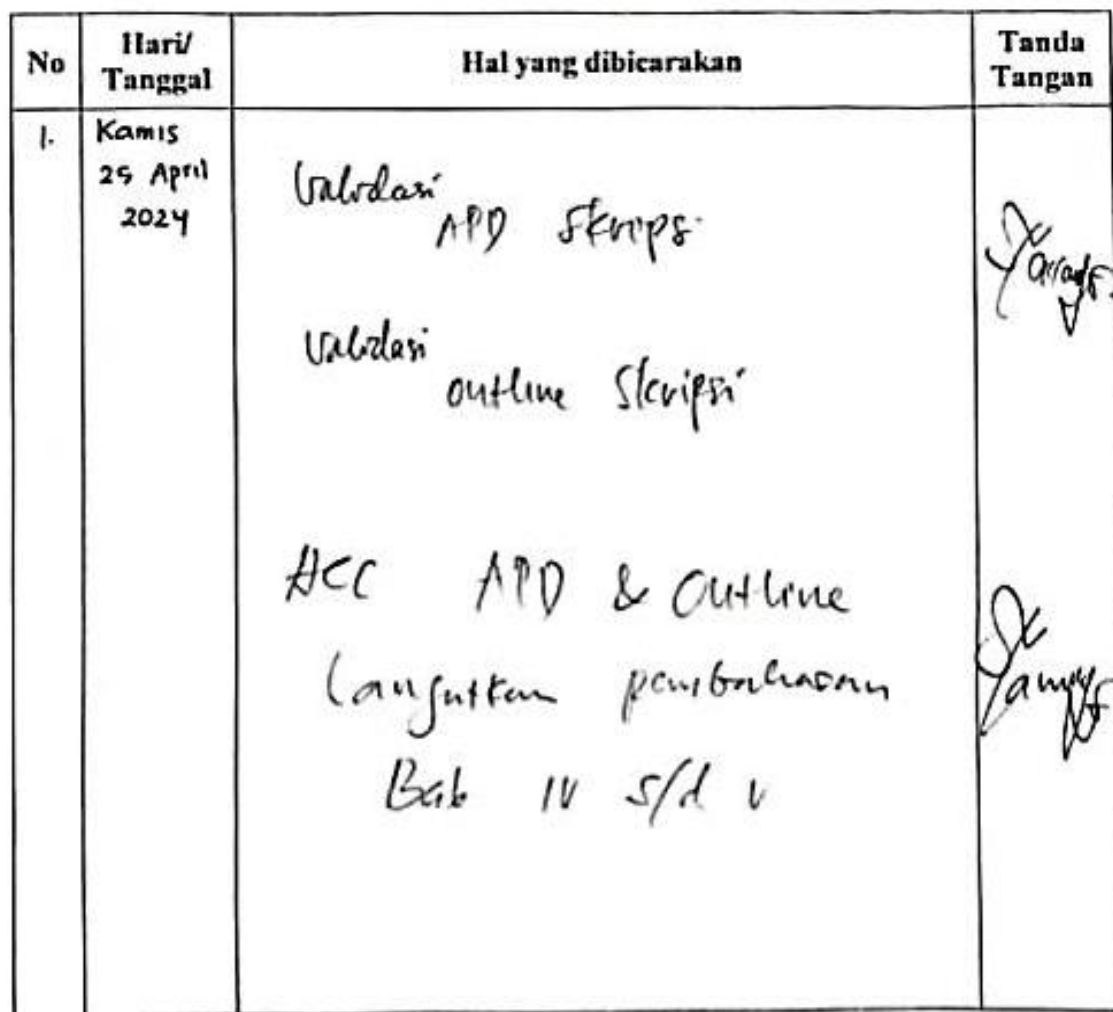 No
Hari/
Tanggal
Hal yang dibicarakan
Tanda
Tangan
1.
Kamis
25 April
2024
Validasi
APD Skripsi
Validasi
outline Skripsi
ACC APD & Outline
Langutkan pembahasan
Bab IV s/d V